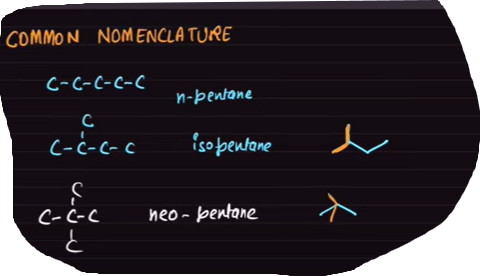 COMMON NOMENCLATURE
C-C-C-C-C
n-pentane
C
C-C-C-C
isopentane
C
C-C-C
C
neo-pentane